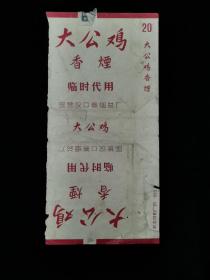 大公鸡
香煙
临时代用
国营汉口卷烟二厂
大公鸡
国营汉口卷烟二厂
临时代用
香煙
大公鸡
20
大公鸡香煙